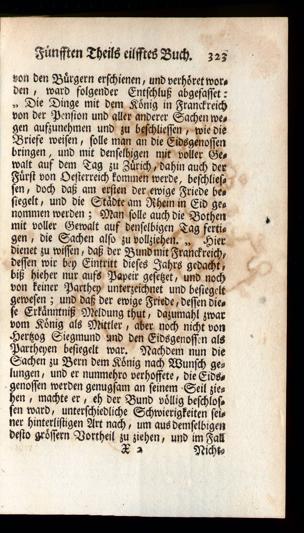 Fünfften Theils eilfftes Buch. 323
von den Bürgern erschienen, und verhöret wor-
den, ward folgender Entschluß abgefasset:
„ Die Dinge mit dem König in Franckreich
von der Pension und aller anderer Sachen we-
gen aufzunehmen und zu beschliessen, wie die
Briefe weisen, solle man an die Eidsgenossen
bringen, und mit denselbigen mit voller Ge-
walt auf dem Tag zu Zürich, dahin auch der
Fürst von Oesterreich kommen werde, beschlies-
sen, doch daß am ersten der ewige Friede be-
siegelt, und die Städte am Rhein in Eid ge-
nommen werden; Man solle auch die Bothen
mit voller Gewalt auf denselbigen Tag ferti-
gen, die Sachen also zu vollziehen. „ Hier
dienet zu wissen, daß der Bund mit Franckreich,
dessen wir bey Eintritt dieses Jahrs gedacht,
biß hieher nur aufs Papeir gesetzet, und noch
von keiner Parthey unterzeichnet und besiegelt
gewesen; und daß der ewige Friede, dessen die-
se Erkänntniß Meldung thut, dazumahl zwar
vom König als Mittler, aber noch nicht von
Hertzog Siegmund und den Eidsgenossen als
Partheyen besiegelt war. Nachdem nun die
Sachen zu Bern dem König nach Wunsch ge-
lungen, und er nunmehro verhoffete, die Eids-
genossen werden genugsam an seinem Seil zie-
hen, machte er, eh der Bund völlig beschlos-
sen ward, unterschiedliche Schwierigkeiten sei-
ner hinterlistigen Art nach, um aus demselbigen
desto grössern Vortheil zu ziehen, und im Fall
X 2 Nicht-